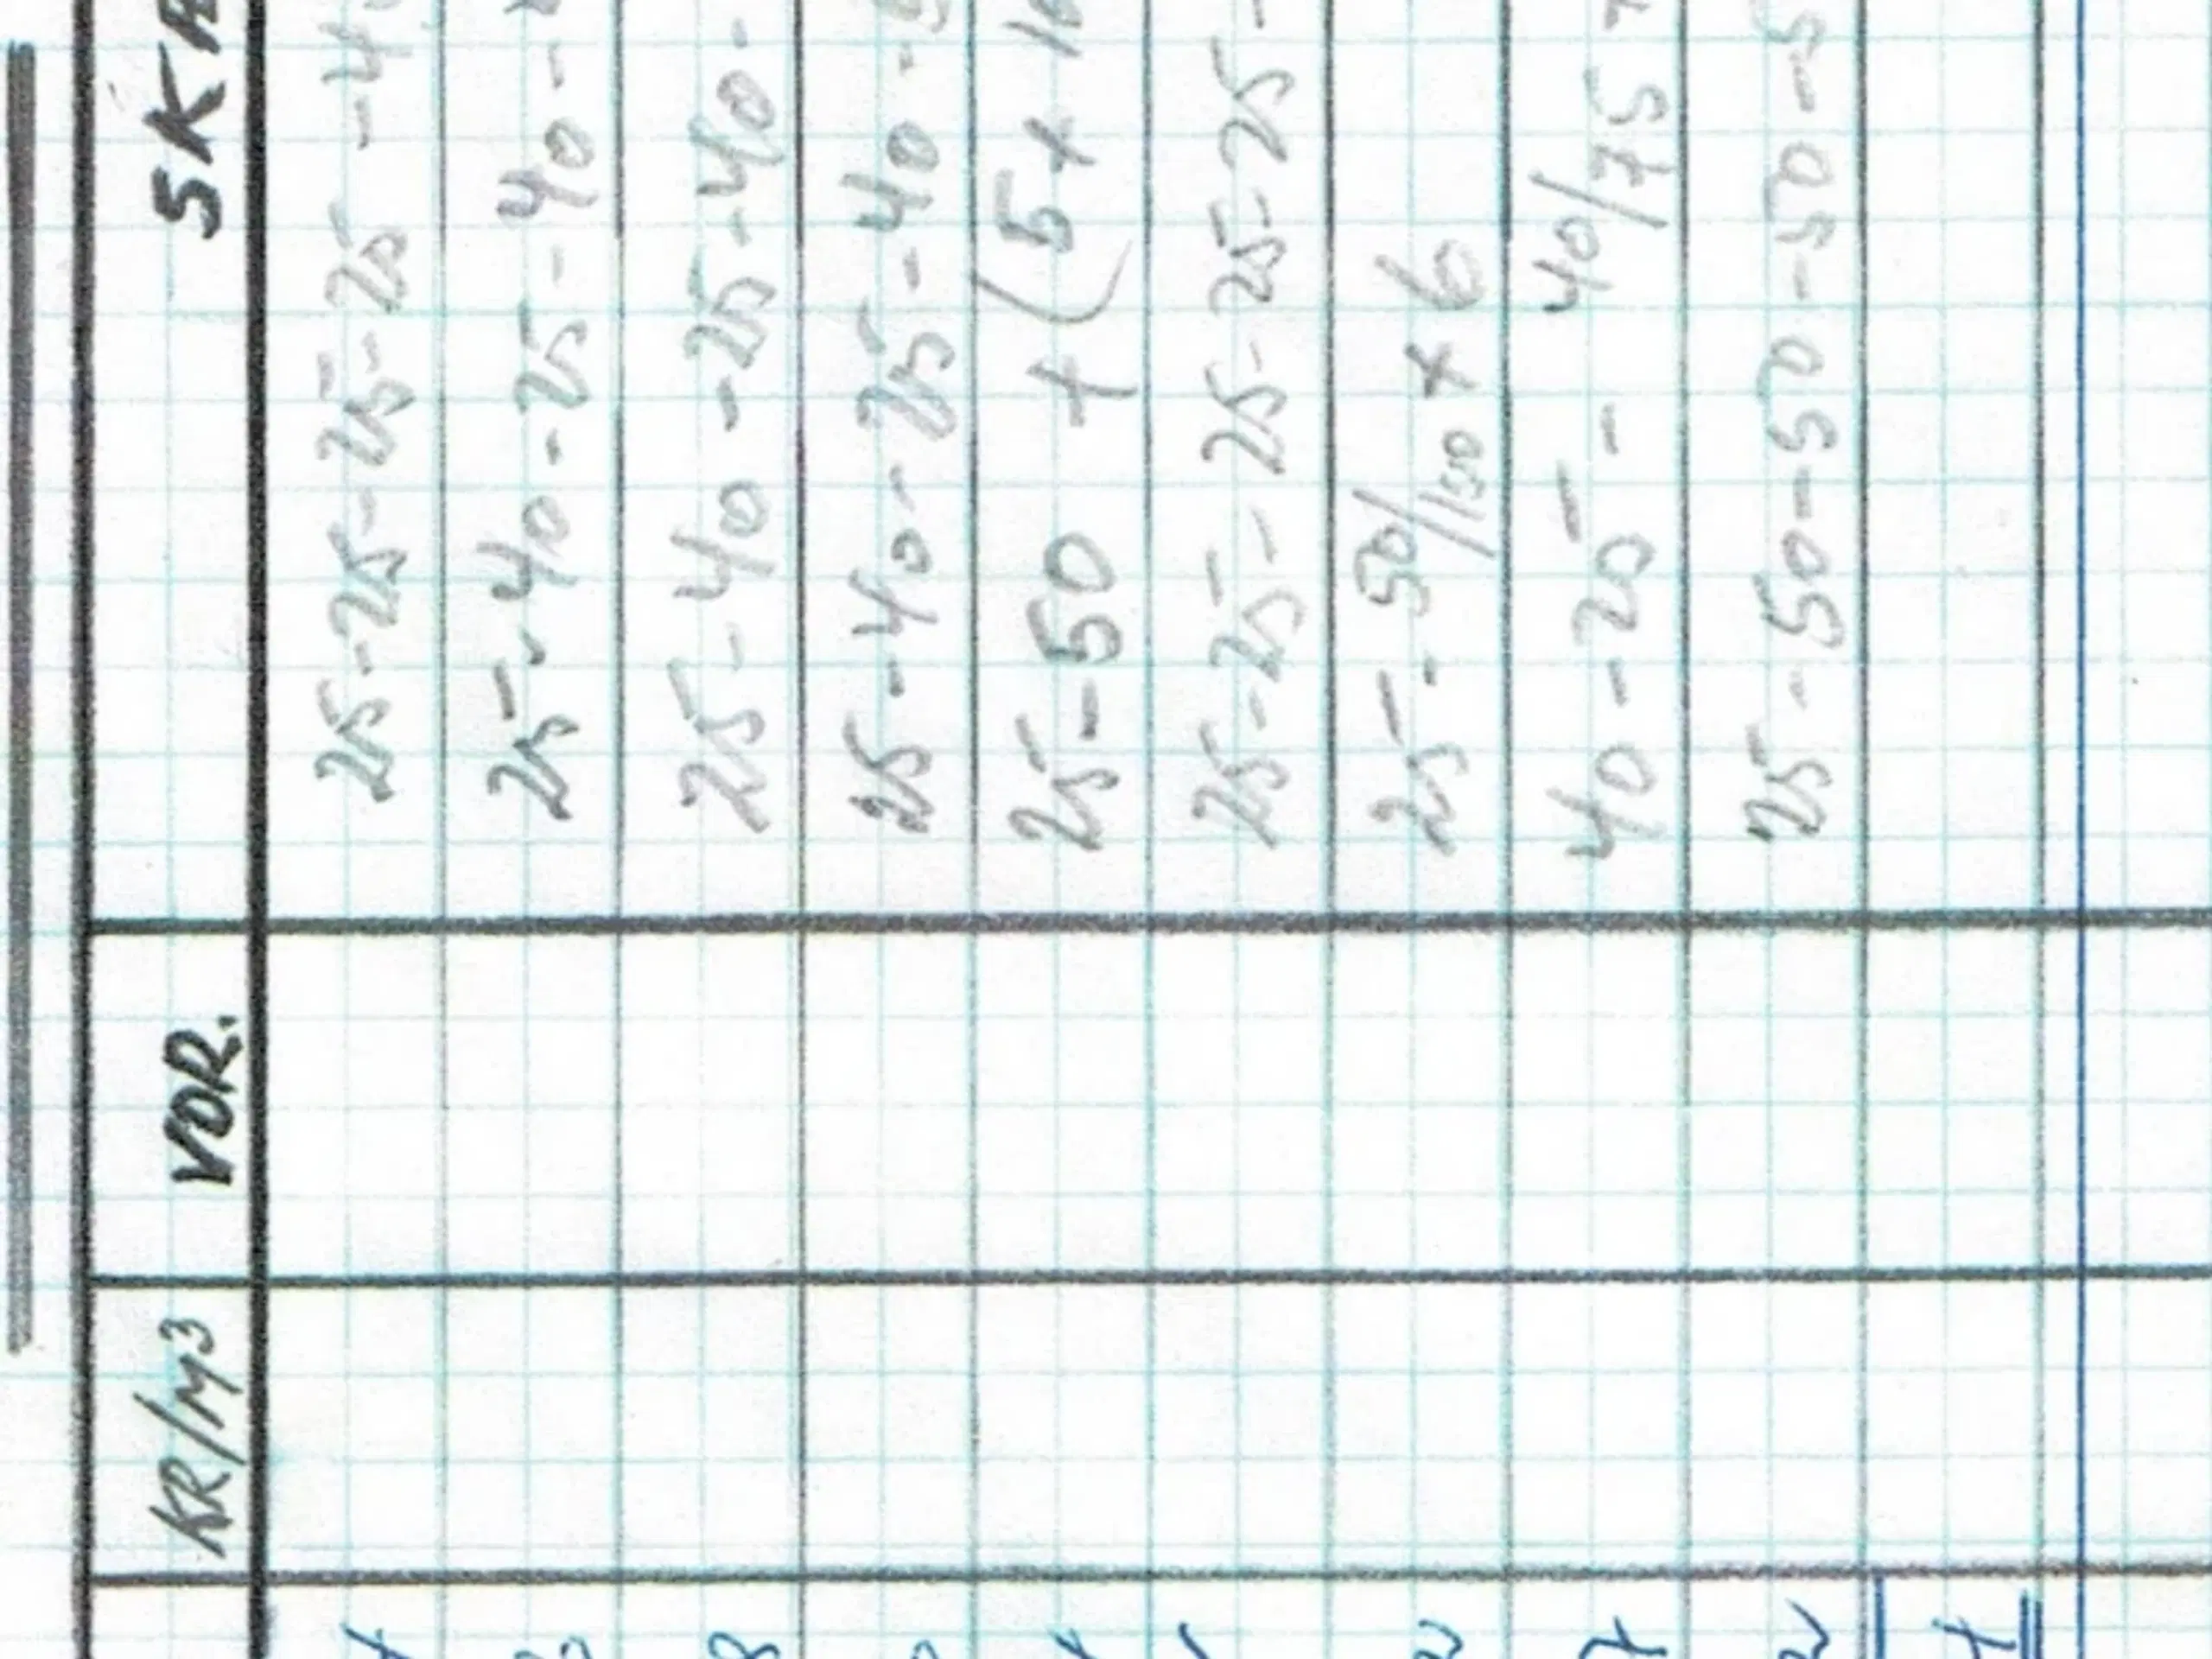 KR/M³ VDR. SK
25-25-25-25-25 -4
25-40-25-40-
25-40-25-40-
25-40-25-40-
25-50 + (5+10
25-25-25-25-25-25-
25-50/150+6
40-25- 40/75
25-50-50-50-5